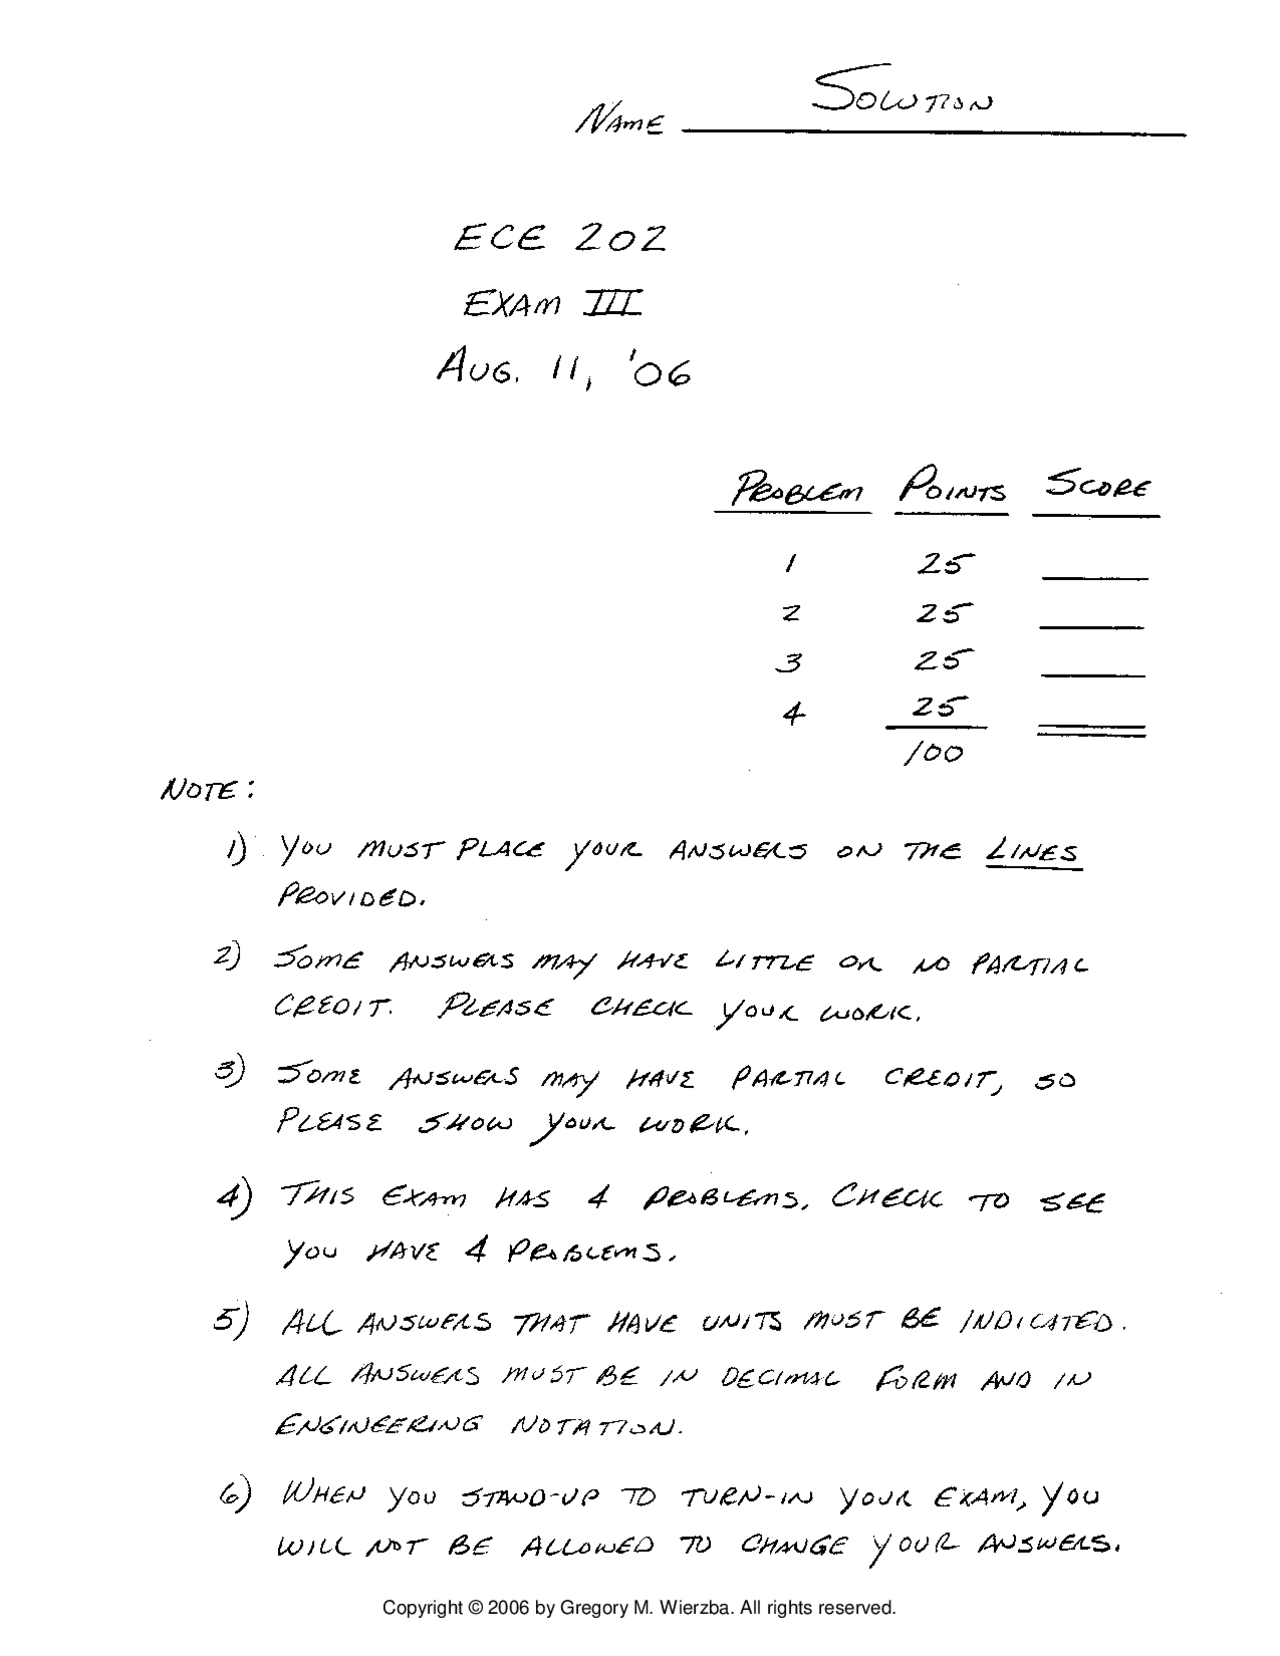 NAME SOLUTION
ECE 202
EXAM III
AUG. 11, '06
PROBLEM POINTS SCORE
1 25
2 25
3 25
4 25
100
NOTE:
1) YOU MUST PLACE YOUR ANSWERS ON THE LINES
PROVIDED.
2) SOME ANSWERS MAY HAVE LITTLE OR NO PARTIAL
CREDIT. PLEASE CHECK YOUR WORK.
3) SOME ANSWERS MAY HAVE PARTIAL CREDIT, SO
PLEASE SHOW YOUR WORK.
4) THIS EXAM HAS 4 PROBLEMS. CHECK TO SEE
YOU HAVE 4 PROBLEMS.
5) ALL ANSWERS THAT HAVE UNITS MUST BE INDICATED.
ALL ANSWERS MUST BE IN DECIMAL FORM AND IN
ENGINEERING NOTATION.
6) WHEN YOU STAND-UP TO TURN-IN YOUR EXAM, YOU
WILL NOT BE ALLOWED TO CHANGE YOUR ANSWERS.
Copyright © 2006 by Gregory M. Wierzba. All rights reserved.